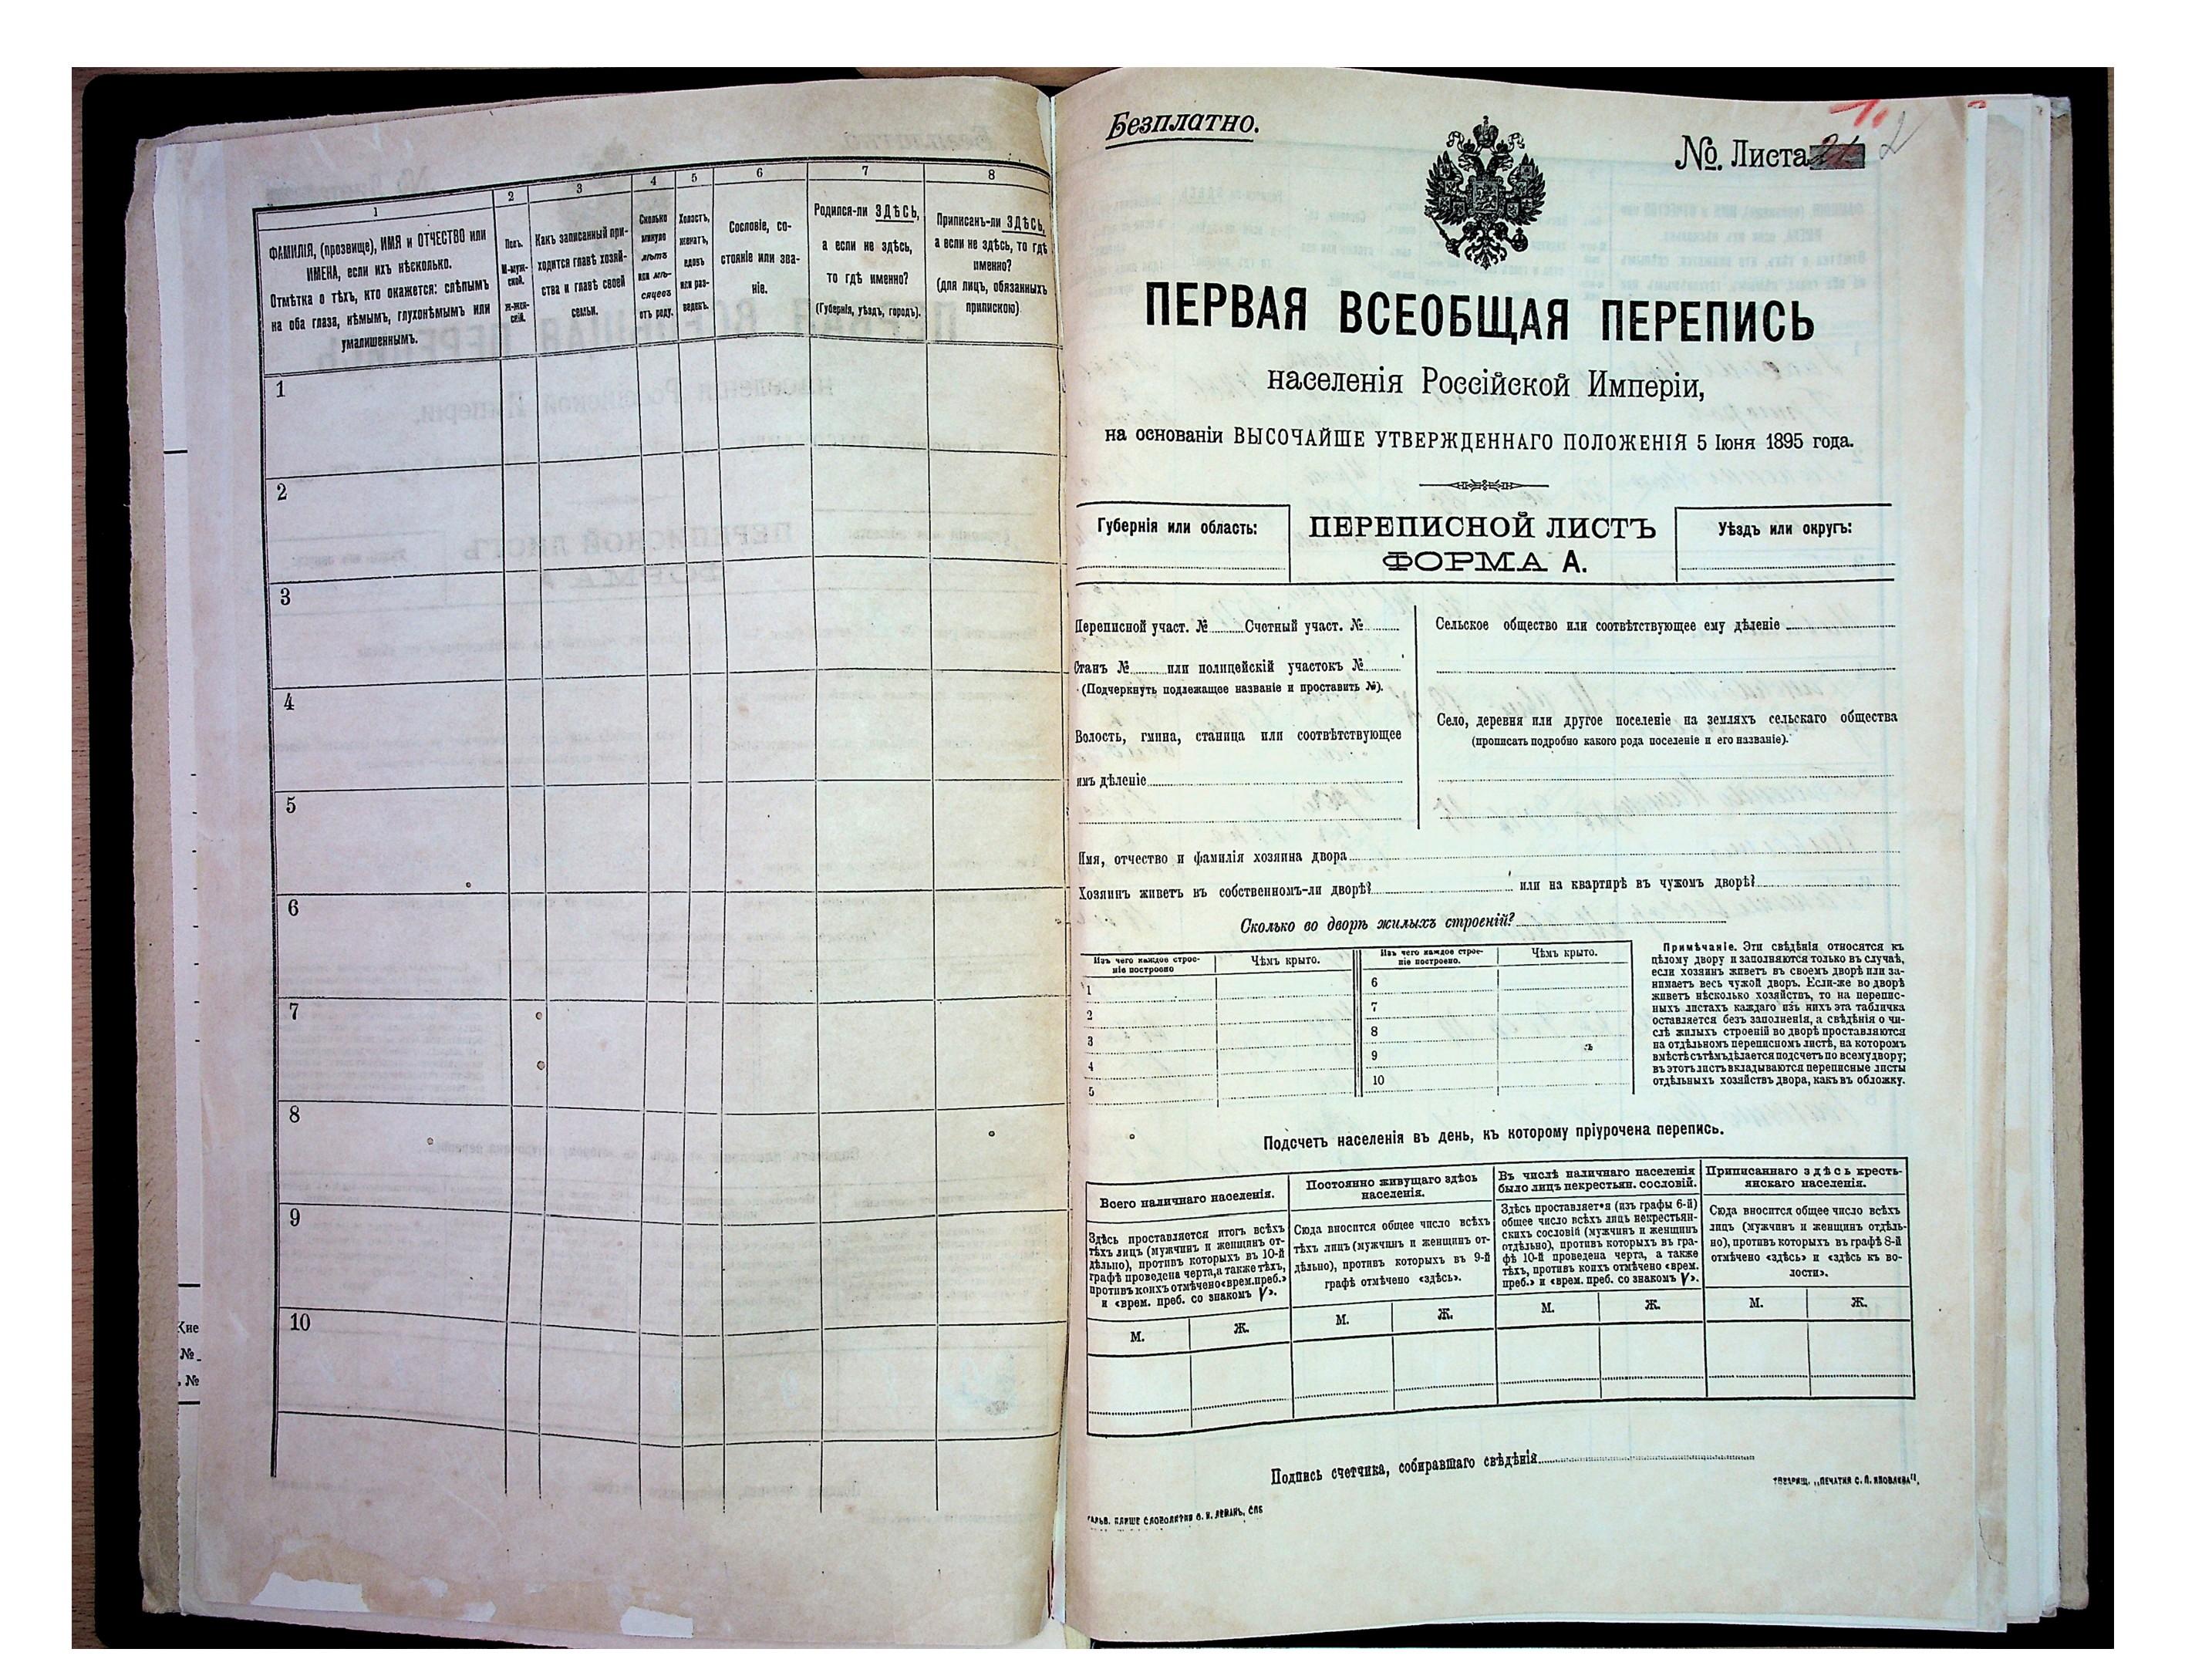 1
2
3
4
5
6
7
8
ФАМИЛІЯ, (прозвище), ИМЯ и ОТЧЕСТВО или
ИМЕНА, если ихъ нѣсколько.
Отмѣтка о тѣхъ, кто окажется: слѣпымъ
на оба глаза, нѣмымъ, глухонѣмымъ или
умалишеннымъ.
Полъ.
М-муж-
ской.
Ж-жен-
скій.
Какъ записанный при-
ходится главѣ хозяй-
ства и главѣ своей
семьи.
Сколько
минуло
лѣтъ
или мѣ-
сяцевъ
отъ роду.
Холостъ,
женатъ,
вдовъ
или раз-
веденъ.
Сословіе, со-
стояніе или зва-
ніе.
Родился-ли ЗДѢСЬ,
а если не здѣсь,
то гдѣ именно?
(Губернія, уѣздъ, городъ).
Приписанъ-ли ЗДѢСЬ,
а если не здѣсь, то гдѣ
именно?
(для лицъ, обязанныхъ
припискою)
1
2
3
4
5
6
7
8
9
10
Кне
№
№
Безплатно.
№ Листа 21
2
ПЕРВАЯ ВСЕОБЩАЯ ПЕРЕПИСЬ
населенія Россійской Имперіи,
на основаніи ВЫСОЧАЙШЕ УТВЕРЖДЕННАГО ПОЛОЖЕНІЯ 5 Іюня 1895 года.
Губернія или область:
ПЕРЕПИСНОЙ ЛИСТЪ
ФОРМА А.
Уѣздъ или округъ:
Переписной участ. № Счетный участ. №
Станъ № или полицейскій участокъ №
(Подчеркнуть подлежащее названіе и проставить №).
Волость, гмина, станица или соотвѣтствующее
имъ дѣленіе
Сельское общество или соотвѣтствующее ему дѣленіе
Село, деревня или другое поселеніе на земляхъ сельскаго общества
(прописать подробно какого рода поселеніе и его названіе).
Имя, отчество и фамилія хозяина двора
Хозяинъ живетъ въ собственномъ-ли дворѣ? или на квартирѣ въ чужомъ дворѣ?
Сколько во дворѣ жилыхъ строеній?
Изъ чего каждое строе-
ніе построено
Чѣмъ крыто.
Изъ чего каждое строе-
ніе построено.
Чѣмъ крыто.
1
2
3
4
5
6
7
8
9
10
Примѣчаніе. Эти свѣдѣнія относятся къ
цѣлому двору и заполняются только въ случаѣ,
если хозяинъ живетъ въ своемъ дворѣ или за-
нимаетъ весь чужой дворъ. Если-же во дворѣ
живетъ нѣсколько хозяйствъ, то на перепис-
ныхъ листахъ каждаго изъ нихъ эта табличка
оставляется безъ заполненія, а свѣдѣнія о чи-
слѣ жилыхъ строеній во дворѣ проставляются
на отдѣльномъ переписномъ листѣ, на которомъ
вмѣстѣ съ тѣмъ дѣлается подсчетъ по всему двору;
въ этотъ листъ вкладываются переписные листы
отдѣльныхъ хозяйствъ двора, какъ въ обложку.
Подсчетъ населенія въ день, къ которому пріурочена перепись.
Всего наличнаго населенія.
Здѣсь проставляется итогъ всѣхъ
тѣхъ лицъ (мужчинъ и женщинъ от-
дѣльно), противъ которыхъ въ 10-й
графѣ проведена черта, а также тѣхъ,
противъ коихъ отмѣчено «врем. преб.»
и «врем. преб. со знакомъ V».
Постоянно живущаго здѣсь
населенія.
Сюда вносится общее число всѣхъ
тѣхъ лицъ (мужчинъ и женщинъ от-
дѣльно), противъ которыхъ въ 9-й
графѣ отмѣчено «здѣсь».
Въ числѣ наличнаго населенія
было лицъ некрестьян. сословій.
Здѣсь проставляется (изъ графы 6-й)
общее число всѣхъ лицъ некрестьян-
скихъ сословій (мужчинъ и женщинъ
отдѣльно), противъ которыхъ въ гра-
фѣ 10-й проведена черта, а также
тѣхъ, противъ коихъ отмѣчено «врем.
преб.» и «врем. преб. со знакомъ V».
Приписаннаго здѣсь кресть-
янскаго населенія.
Сюда вносится общее число всѣхъ
лицъ (мужчинъ и женщинъ отдѣль-
но), противъ которыхъ въ графѣ 8-й
отмѣчено «здѣсь» и «здѣсь къ во-
лости».
М. Ж. М. Ж. М. Ж. М. Ж.
Подпись счетчика, собиравшаго свѣдѣнія
ТОВАРИЩ. „ПЕЧАТНЯ С. П. ЯКОВЛЕВА",
КЛИШЕ СЛОВОЛИТНИ О. И. ЛЕМАНЪ, СПБ